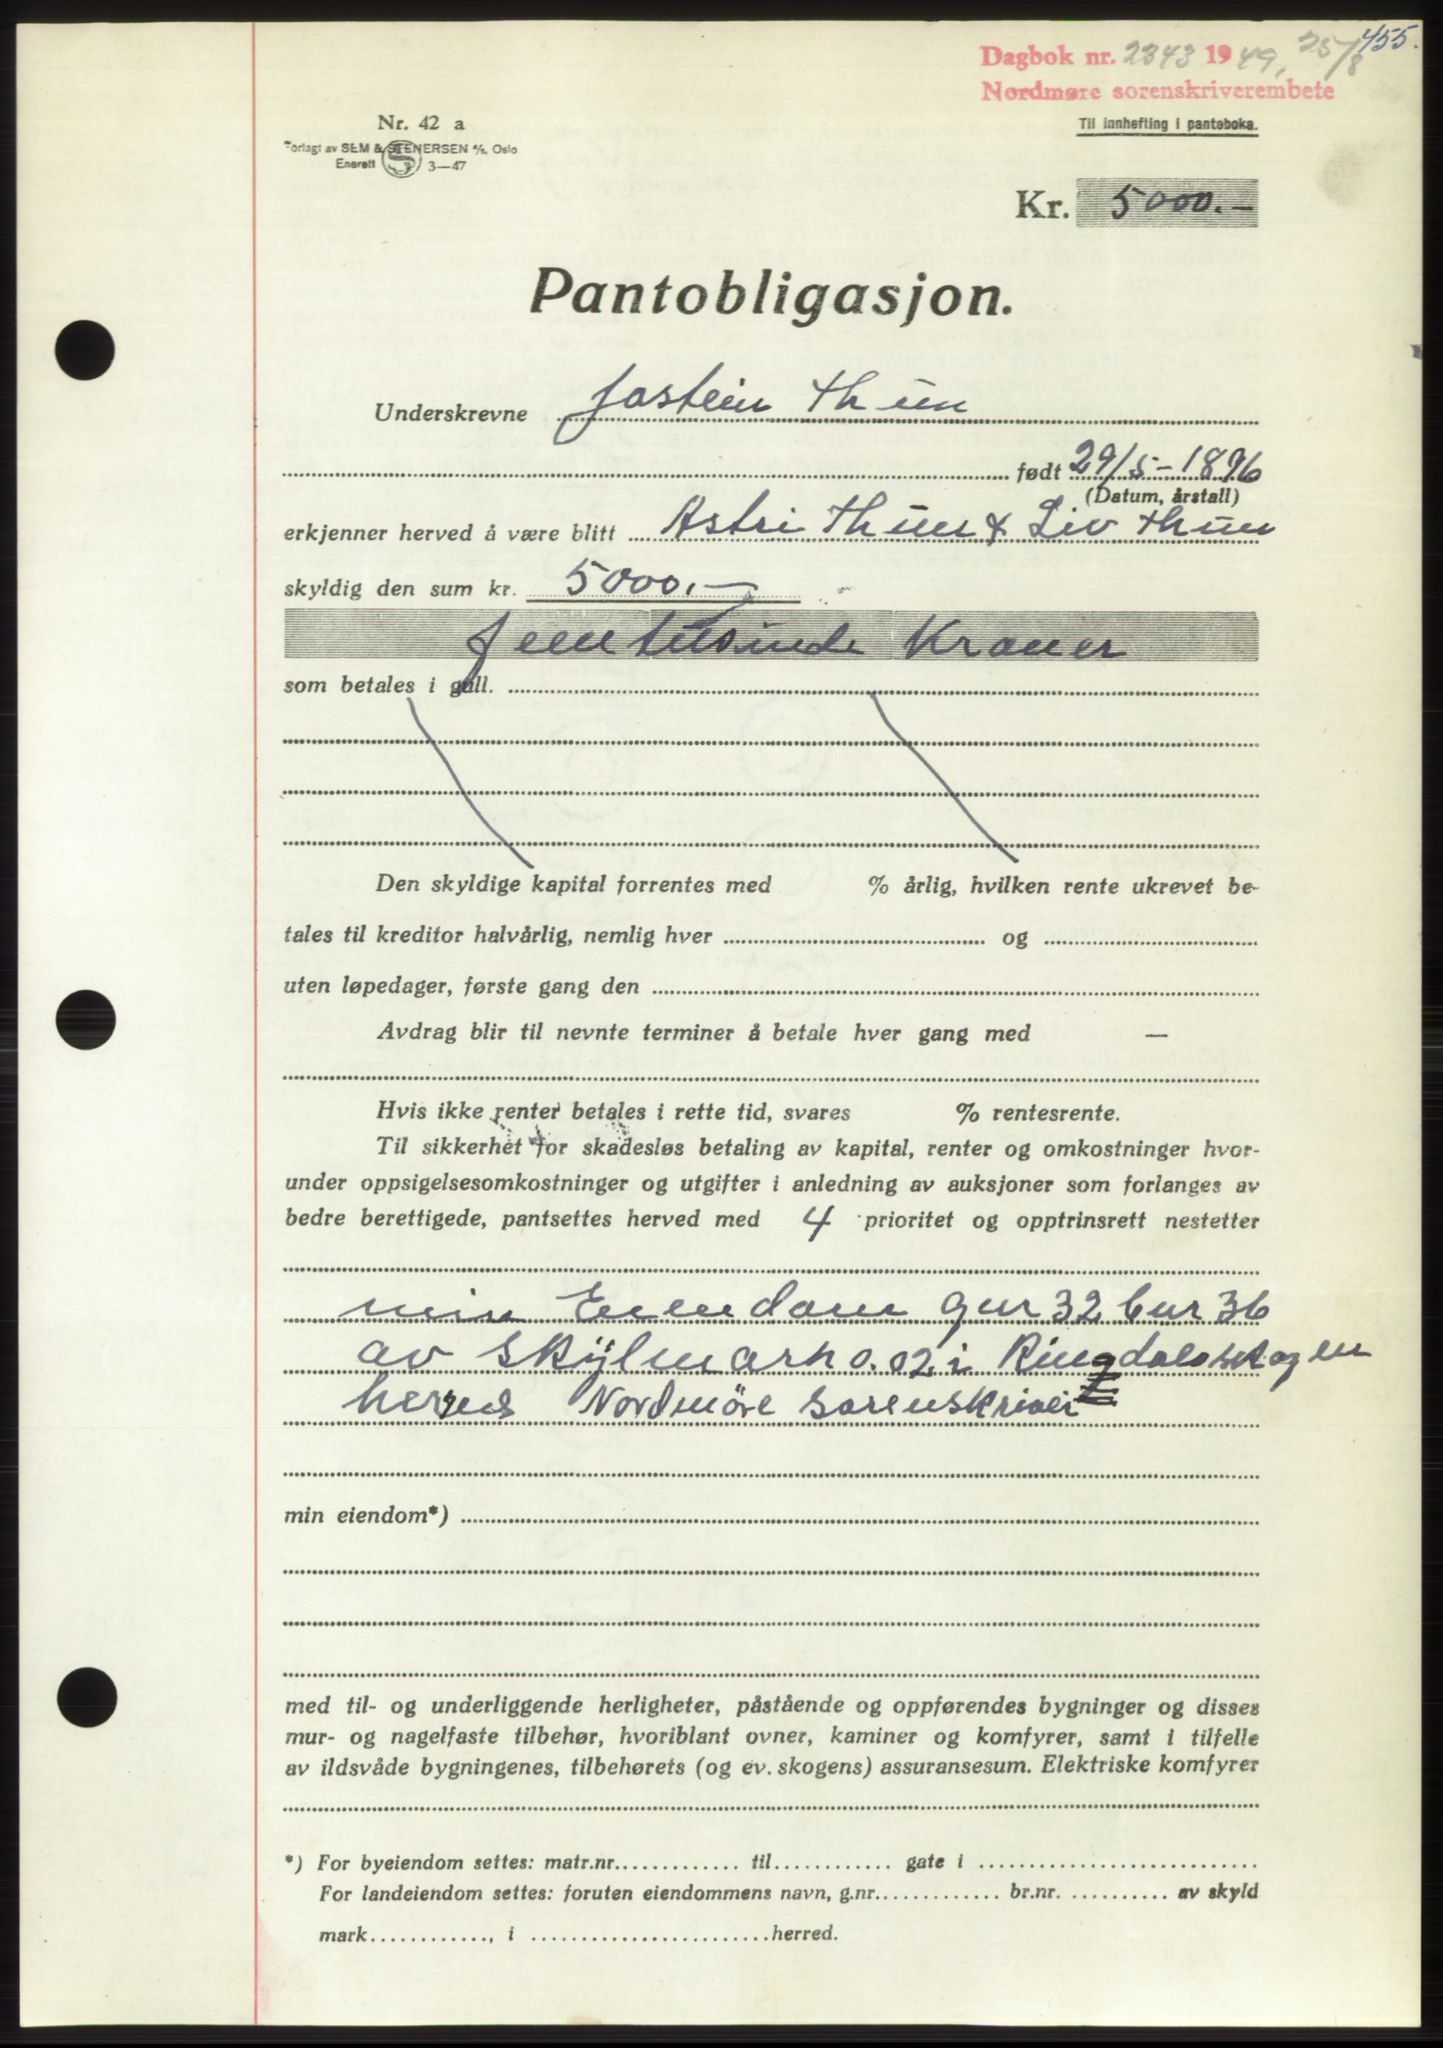 455.
Dagbok nr. 2343 1949, 25/8
Nordmøre sorenskriverembete
Til innhefting i panteboka.
Nr. 42 a
Forlagt av SEM & STENERSEN A/S, Oslo
Enerett S 3—47
Kr. 5000.-
Pantobligasjon.
Underskrevne Jostein Thun
født 29/5-1896
(Datum, årstall)
erkjenner herved å være blitt Astri Thun & Liv Thun
skyldig den sum kr. 5000.-
femtusinde Kroner
som betales i gull.
Den skyldige kapital forrentes med % årlig, hvilken rente ukrevet be-
tales til kreditor halvårlig, nemlig hver og
uten løpedager, første gang den
Avdrag blir til nevnte terminer å betale hver gang med —
Hvis ikke renter betales i rette tid, svares % rentesrente.
Til sikkerhet for skadesløs betaling av kapital, renter og omkostninger hvor-
under oppsigelsesomkostninger og utgifter i anledning av auksjoner som forlanges av
bedre berettigede, pantsettes herved med 4 prioritet og opptrinsrett nestetter
min Eiendom gnr 32 bnr 36
av Skylmark 0.02 i
Nordmöre sorenskriveri
min eiendom*)
med til- og underliggende herligheter, påstående og oppførendes bygninger og disses
mur- og nagelfaste tilbehør, hvoriblant ovner, kaminer og komfyrer, samt i tilfelle
av ildsvåde bygningenes, tilbehørets (og ev. skogens) assuransesum. Elektriske komfyrer
*) For byeiendom settes: matr.nr. til gate i
For landeiendom settes: foruten eiendommens navn, g.nr. br.nr. av skyld
mark , i herred.